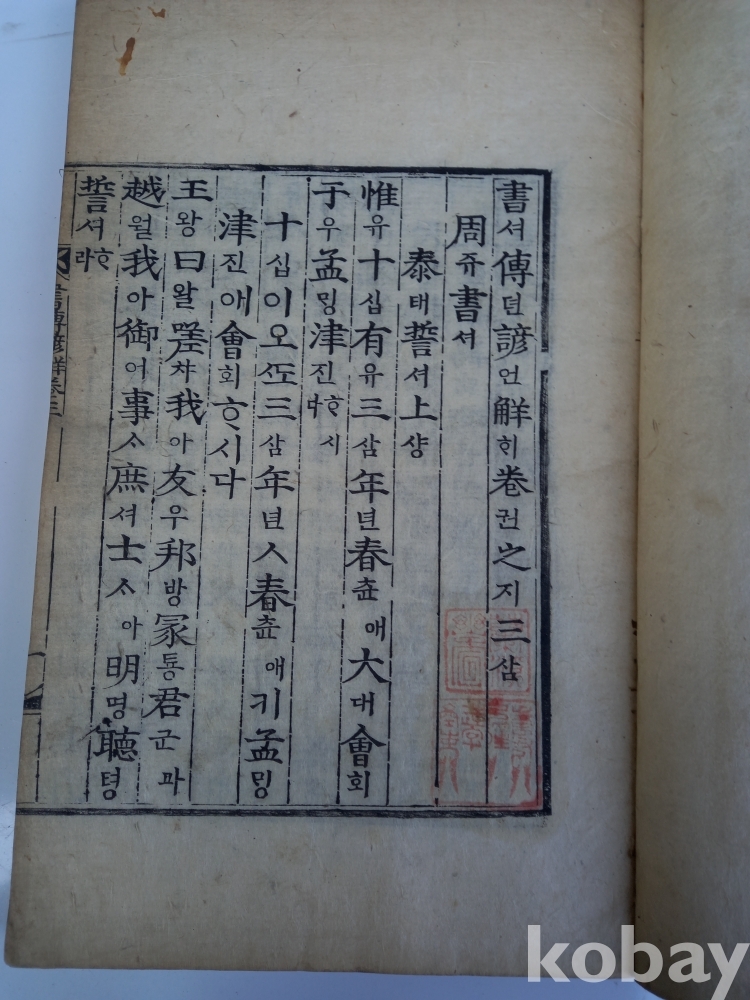 書셔傳뎐諺언解ᄒᆡ卷권之지三삼
周쥬書셔
泰태誓셔上샹
惟유十십有유三삼年년春츈애大대會회
于우孟ᄆᆡᆼ津진ᄒᆞ시다
十십이오ᄯᅩ三삼年년ㅅ春츈애기孟ᄆᆡᆼ
津진애會회ᄒᆞ시다
王왕曰왈嗟챠我아友우邦방冢통君군과
越월我아御어事ᄉᆞ庶셔士ᄉᆞ아明명聽텽
誓셔ᄒᆞ라
書傳諺解卷三
kobay